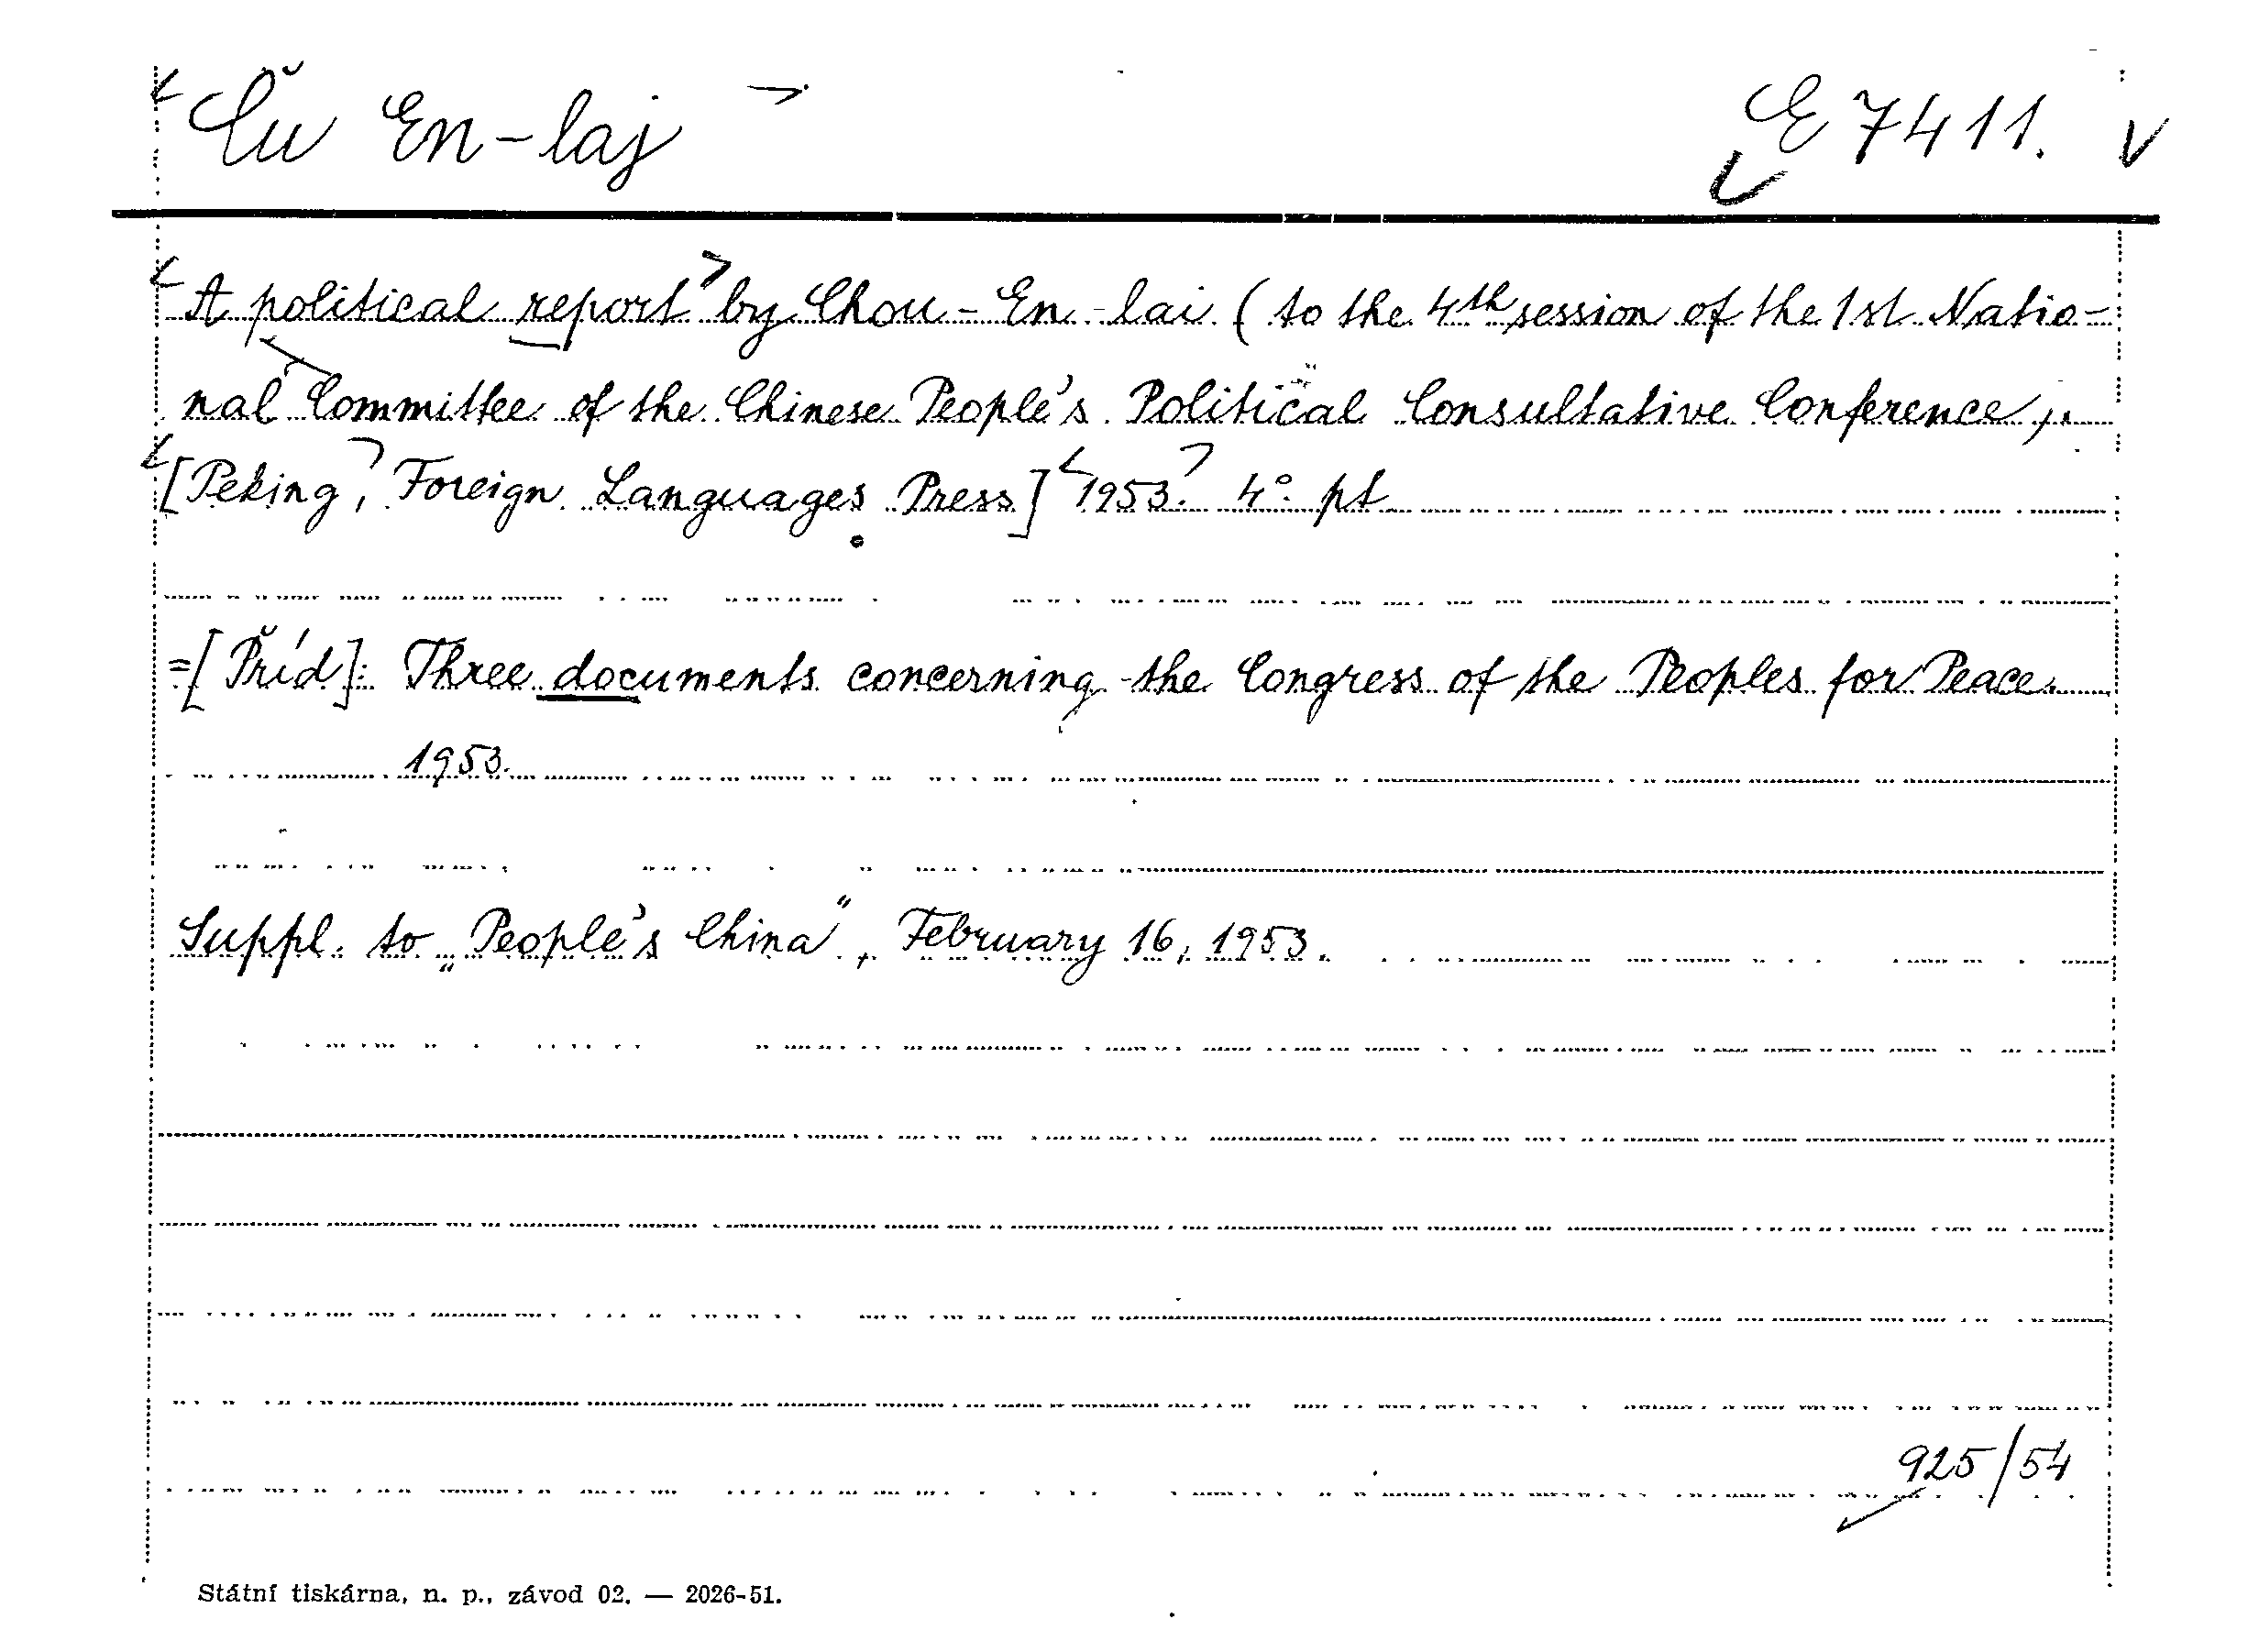 Ču En-laj
E 7411.
A political report by Chou-En-lai (to the 4th session of the 1st Natio-
nal Committee of the Chinese People's Political Consultative Conference,
[Peking, Foreign Languages Press] 1953. 4° pt
=[Příd]: Three documents concerning the Congress of the Peoples for Peace.
1953.
Suppl. to „People's China“, February 16, 1953.
925/54
Státní tiskárna, n. p., závod 02. — 2026-51.